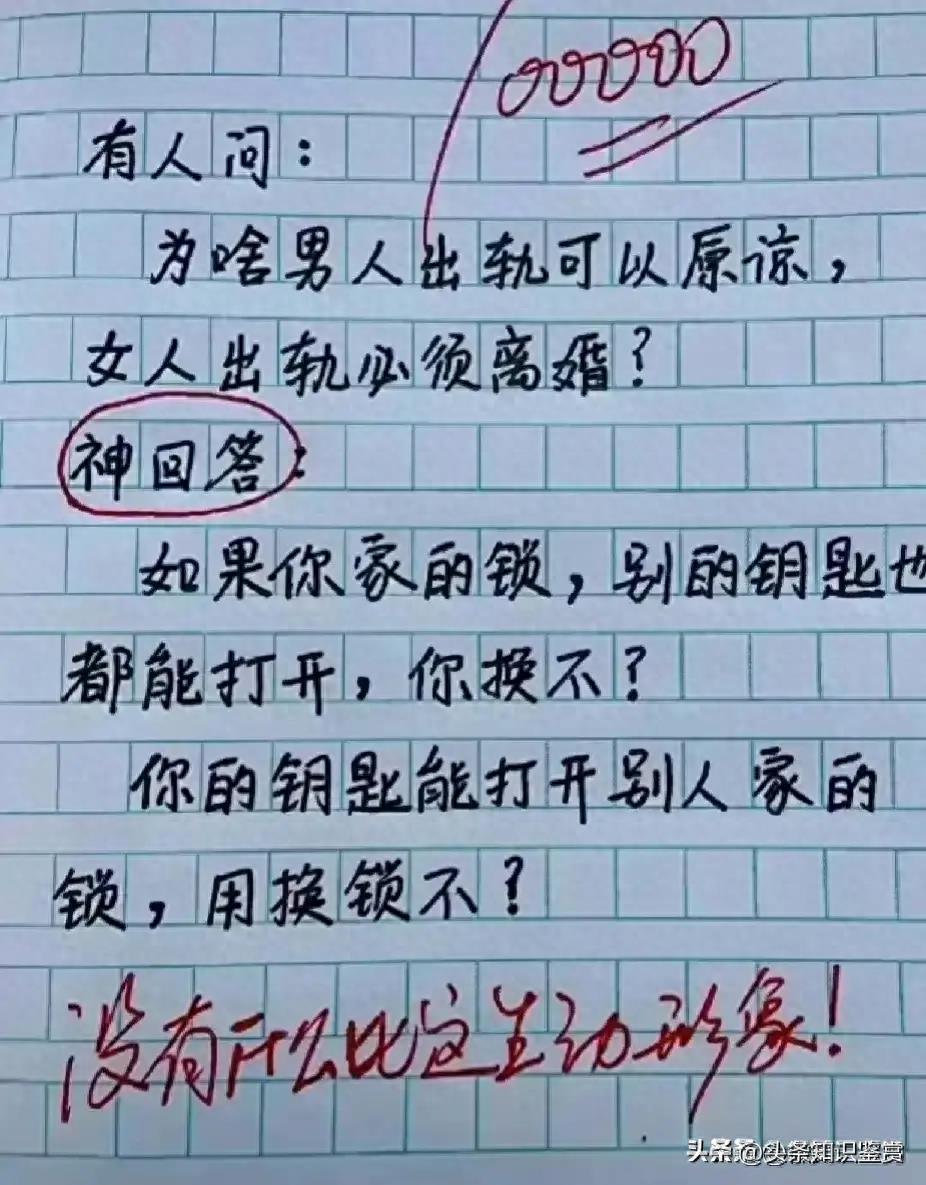 有人问：
为啥男人出轨可以原谅，
女人出轨必须离婚？
神回答：
如果你家的锁，别的钥匙也
都能打开，你换不？
你的钥匙能打开别人家的
锁，用换锁不？
没有什么比这生动形象！
头条 @头条知识鉴赏